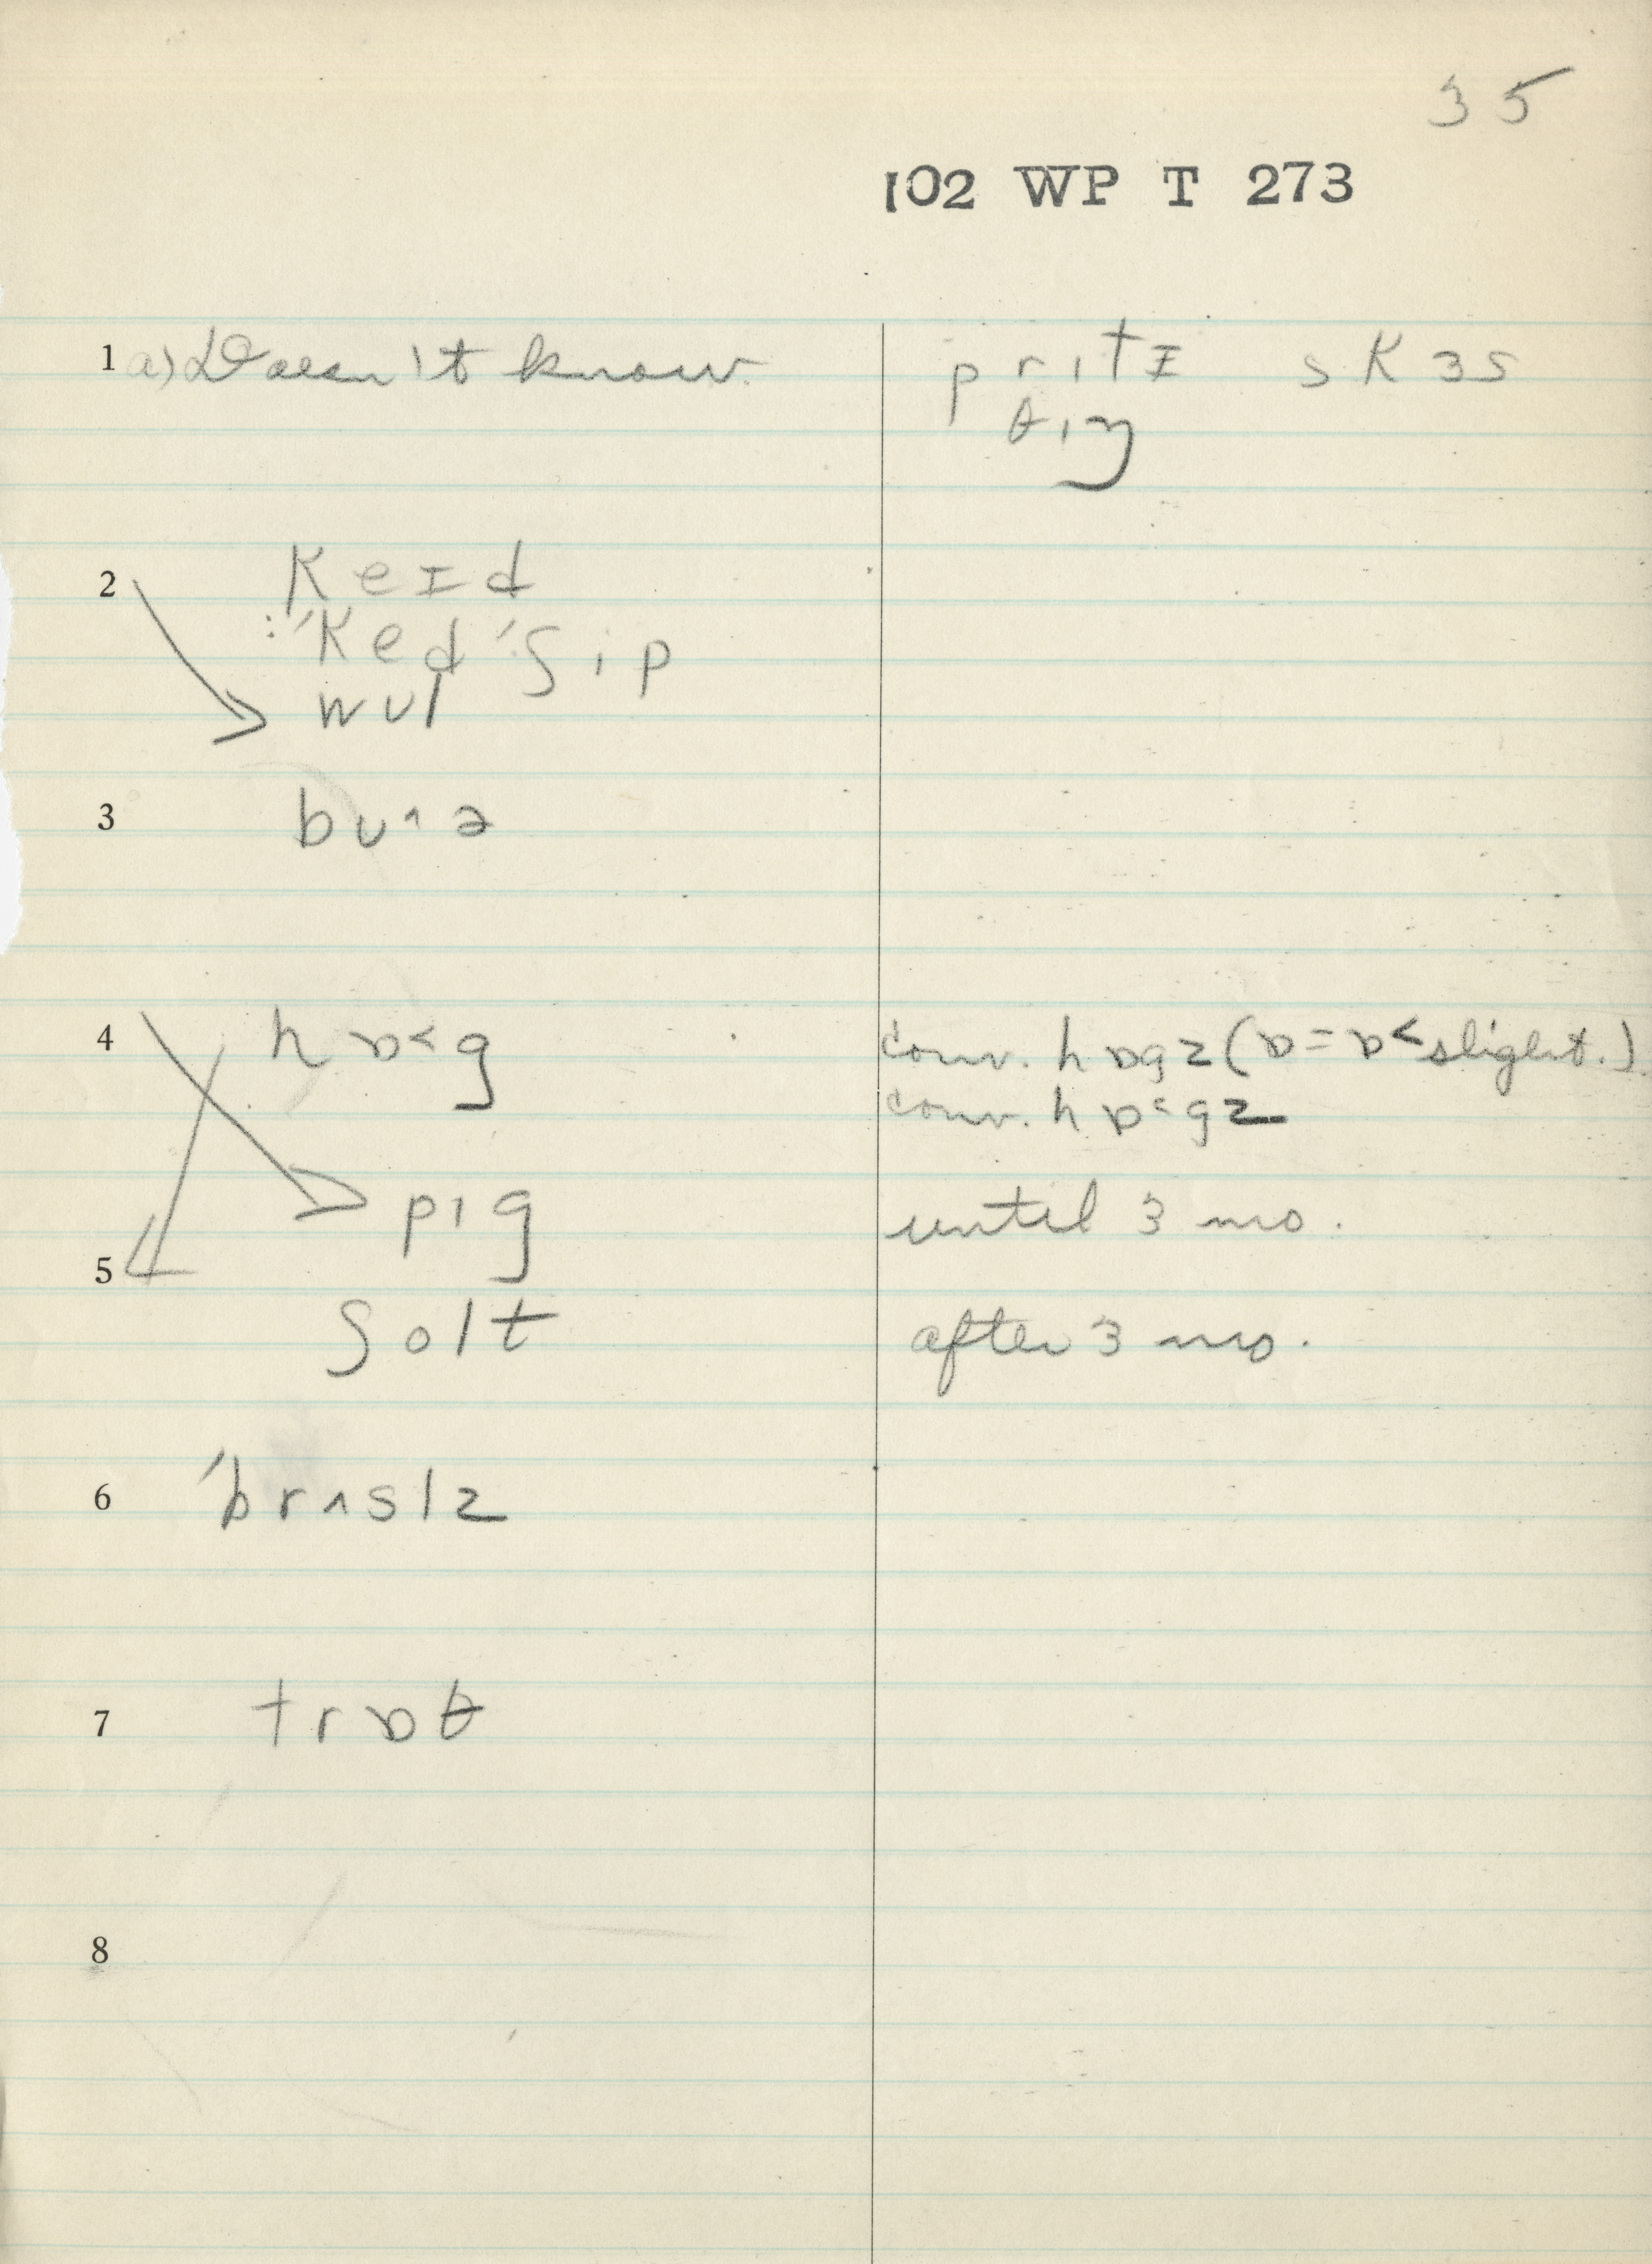 35
102 WP T 273
1 a) Doesn't know. prɪtɪ skɜs
θɪŋ
2 keɪd
:ˈkedˈʃɪp
wul
3
4 hɒ˂g conv. hɒgz (ɒ = ɒ˂ slight.)
conv. hɒ˂gz
pɪg until 3 mo.
5
ʃolt after 3 mo.
6 ˈbrʌslz
7 trɒθ
8